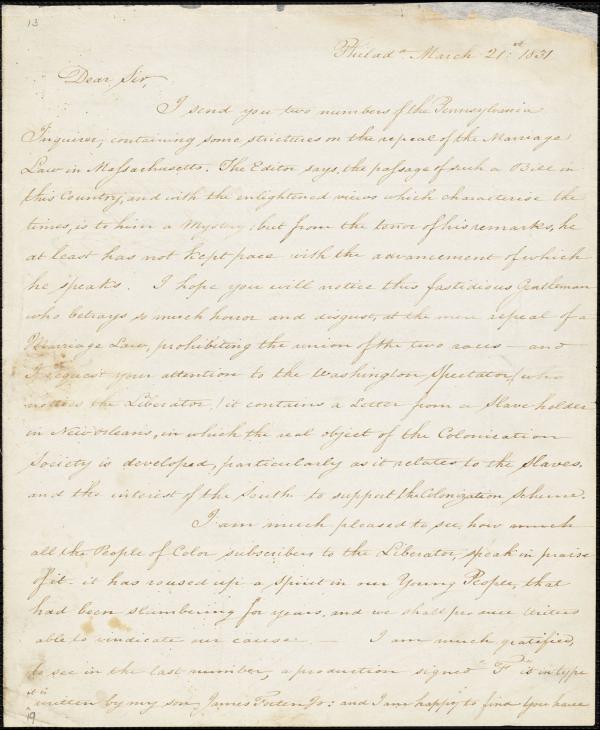 13
Philada March 21st 1831
Dear Sir,
I send you two numbers of the Pennsylvania
Inquirer, containing some strictures on the repeal of the Marriage
Law in Massachusetts. The Editor says, the passage of such a Bill in
this Country, and with the enlightened views which characterise the
times, is to him a Mystery: but from the tenor of his remarks, he
at least has not kept pace with the advancement of which
he speaks. I hope you will notice this fastidious Gentleman
who betrays so much horor and disgust, at the mere repeal of a
Marriage Law, prohibiting the union of the two races — and
I request your attention to the Washington Spectator, (who
notices the Liberator) it contains a Letter from a Slave holder
in New Orleans, in which the real object of the Colonization
Society is developed, particularly as it relates to the Slaves,
and the interest of the South to support the Colonization Scheme.
I am much pleased to see, how much
all the People of Color subscribers to the Liberator, speak in praise
of it - it has roused up a Spirit in our Young People, that
had been slumbering for years, and we shall produce writers
able to vindicate our cause. — I am much gratified,
to see in the last number, a production signed "F" is in type
it is
written by my son, James Forten Jr: and I am happy to find you have
19